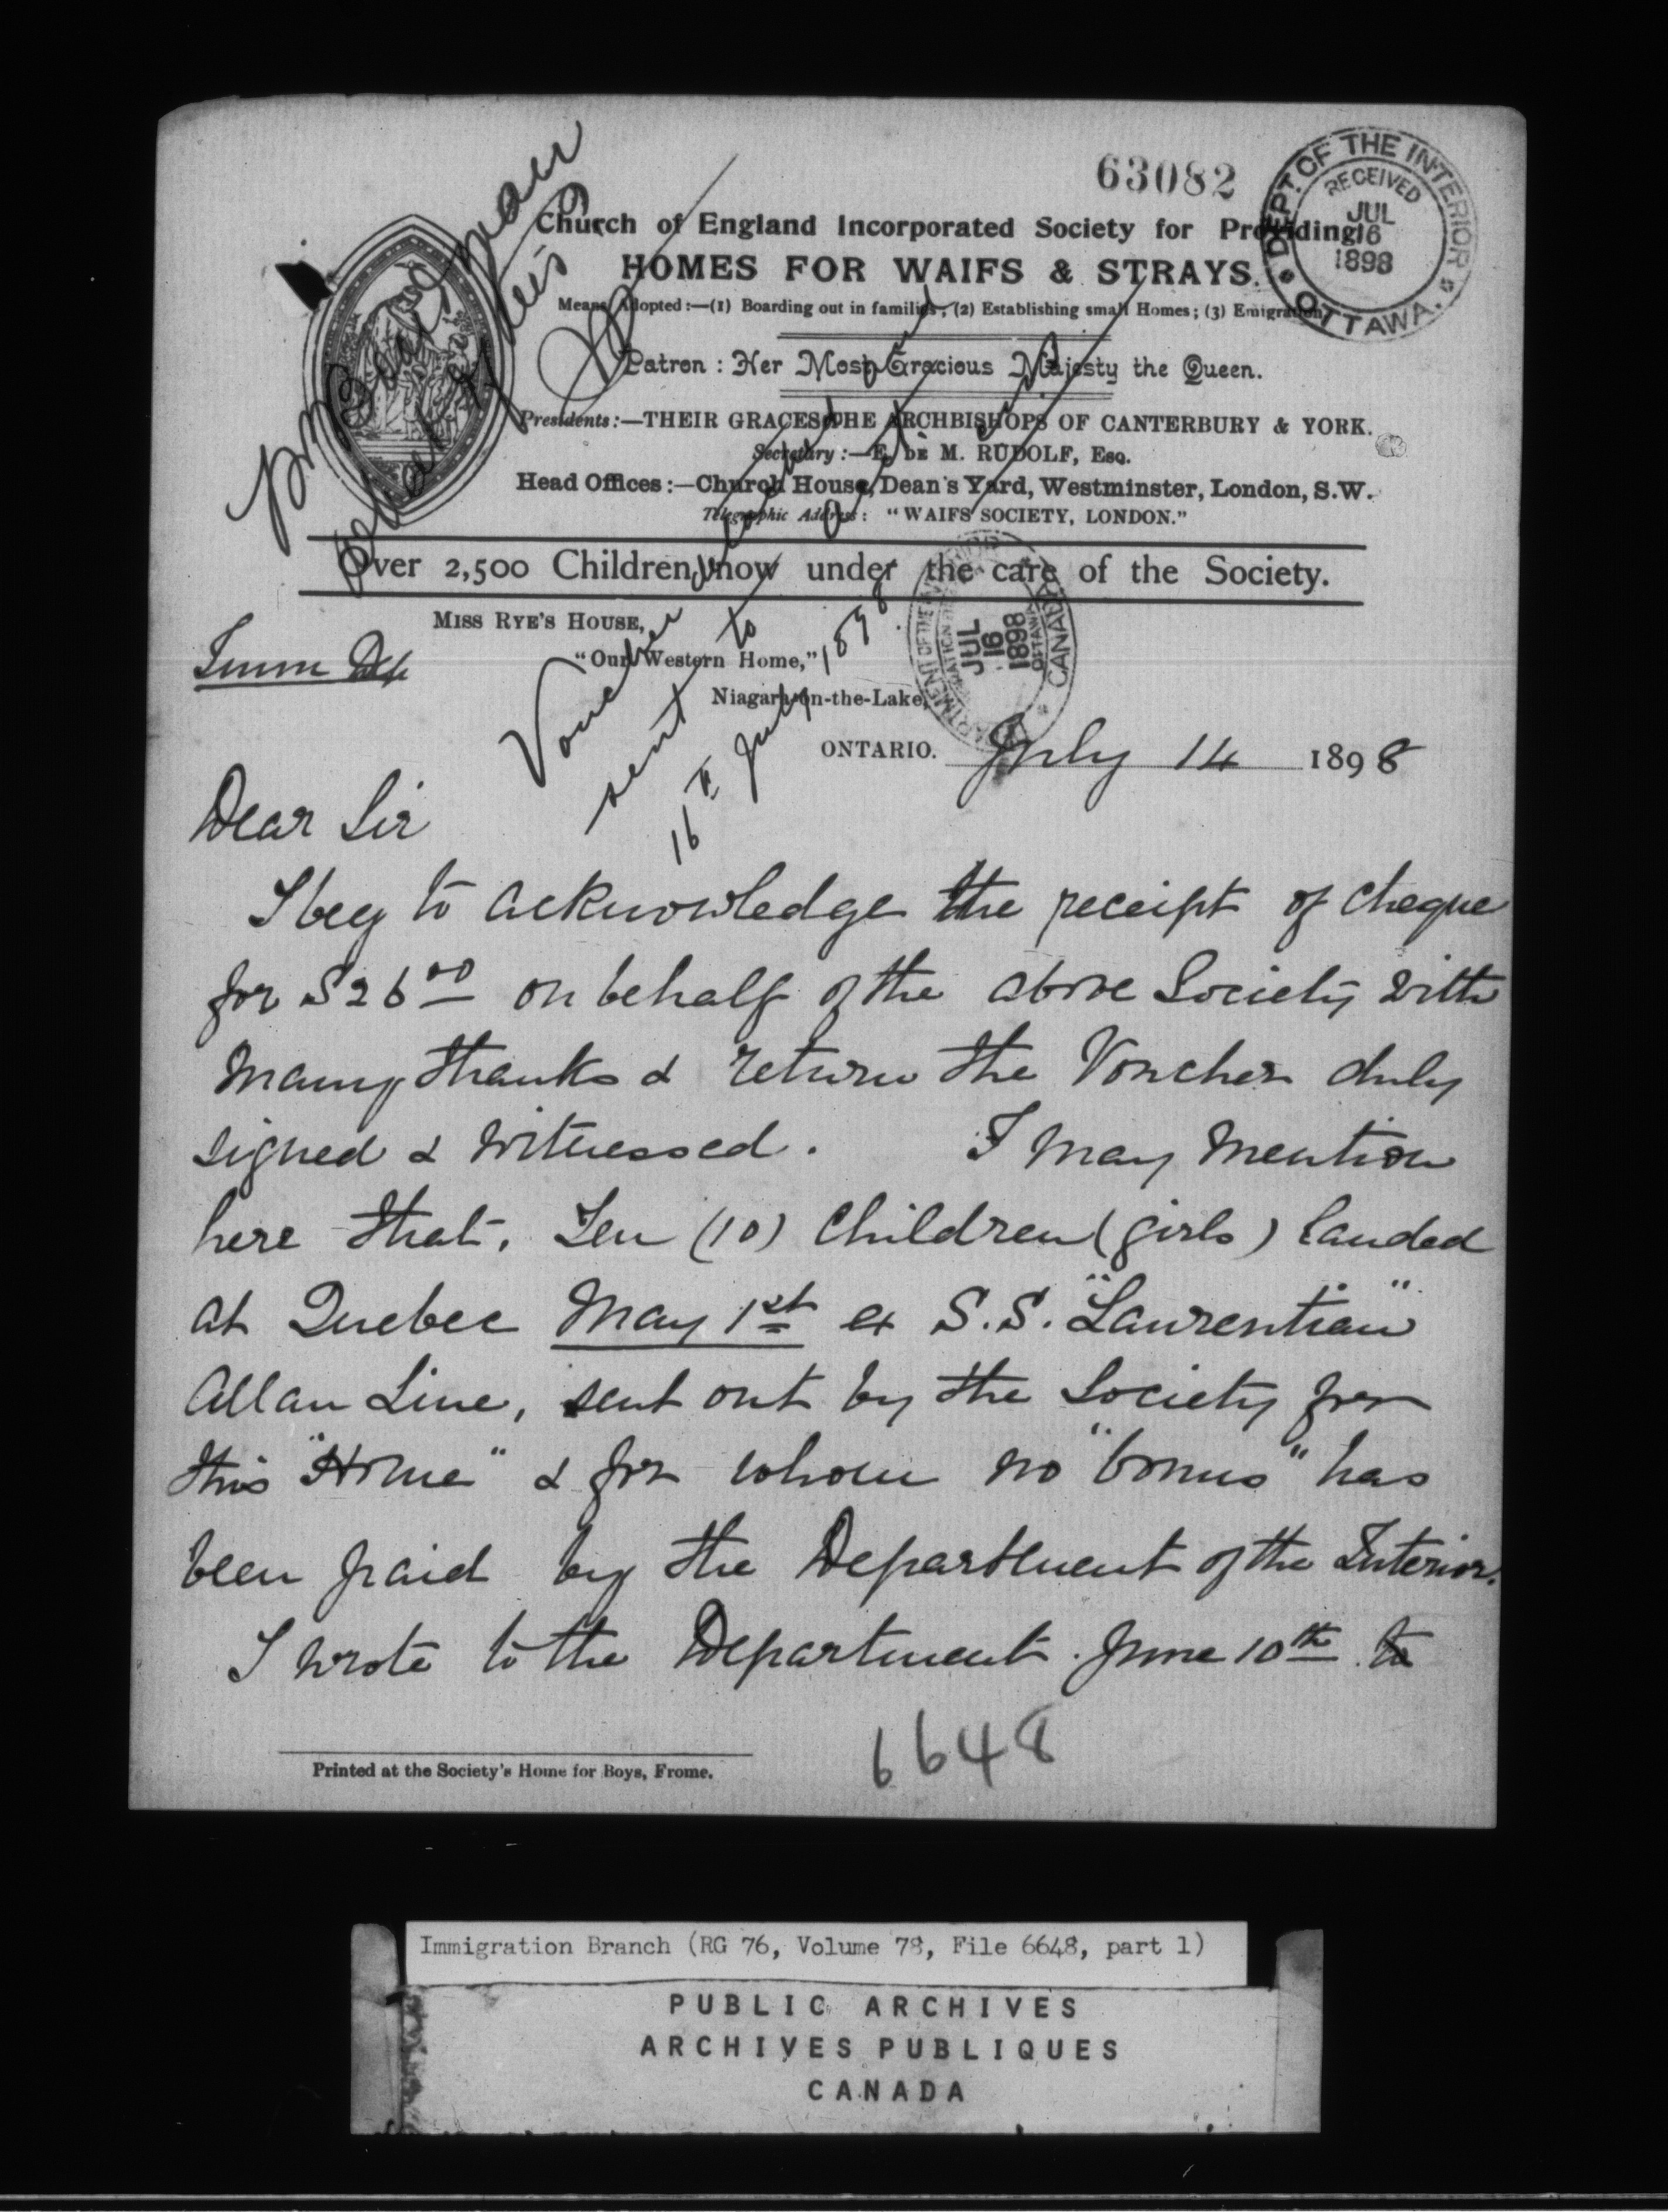 63082
DEPT. OF THE INTERIOR
RECEIVED
JUL
16
1898
OTTAWA.
Church of England Incorporated Society for Providing
HOMES FOR WAIFS & STRAYS.
Means Adopted:—(1) Boarding out in families; (2) Establishing small Homes; (3) Emigration
Patron: Her Most Gracious Majesty the Queen.
Presidents:—THEIR GRACES THE ARCHBISHOPS OF CANTERBURY & YORK.
Secretary:—E. DE M. RUDOLF, Esq.
Head Offices:—Church House, Dean's Yard, Westminster, London, S.W.
Telegraphic Address: "WAIFS SOCIETY, LONDON."
Over 2,500 Children now under the care of the Society.
MISS RYE'S HOUSE,
"Our Western Home,"
Niagara-on-the-Lake,
ONTARIO. July 14 1898
JUL
16
1898
OTTAWA
CANADA
Voucher
sent to
16th July 1898
Dear Sir
I beg to acknowledge the receipt of cheque
for $26 00 on behalf of the above Society with
many thanks & return the Voucher duly
signed & witnessed. I may mention
here that, Ten (10) Children (girls) landed
at Quebec May 1st ex S.S. "Laurentian"
Allan Line, sent out by the Society for
this "Home" & for whom no "bonus" has
been paid by the Department of the Interior.
I wrote to the Department June 10th to
6648
Printed at the Society's Home for Boys, Frome.
Immigration Branch (RG 76, Volume 78, File 6648, part 1)
PUBLIC ARCHIVES
ARCHIVES PUBLIQUES
CANADA